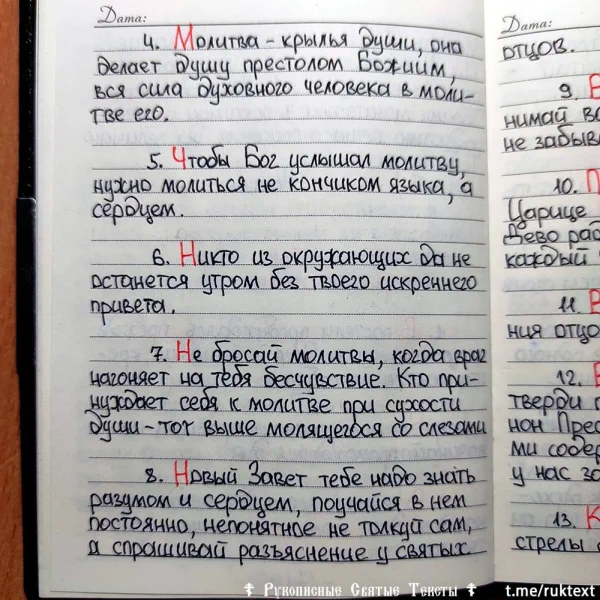 Дата:
4. Молитва - крылья души, она
делает душу престолом Божиим,
вся сила духовного человека в моли-
тве его.
5. Чтобы Бог услышал молитву,
нужно молиться не кончиком языка, а
сердцем.
6. Никто из окружающих да не
останется утром без твоего искреннего
привета.
7. Не бросай молитвы, когда враг
нагоняет на тебя бесчувствие. Кто при-
нуждает себя к молитве при сухости
души - тот выше молящегося со слезами
8. Новый Завет тебе надо знать
разумом и сердцем, поучайся в нем
постоянно, непонятное не толкуй сам,
а спрашивай разъяснение у святых
Дата:
отцов.
9. В
нимай во
не забыв
10. П
Царице
Дево рад
каждый
11. В
ния отцо
12. В
тверди п
нон Прес
ми содер
у нас за
13. К
стрелы
Рукописные Святые Тексты
t.me/ruktext